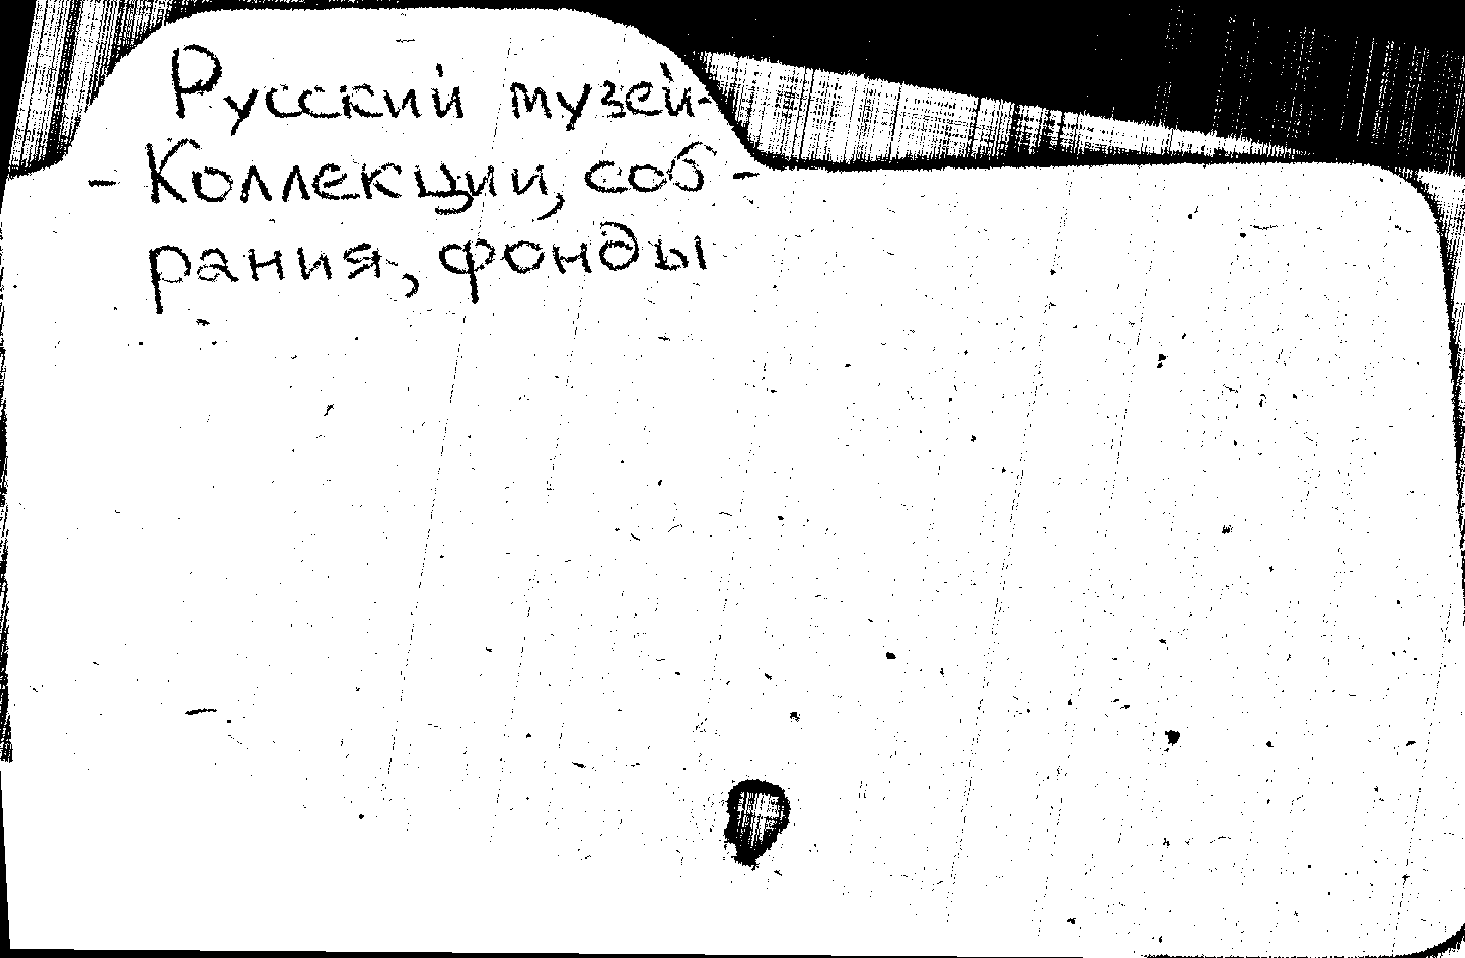 Русский музей-
- Коллекции, соб-
рания, фонды